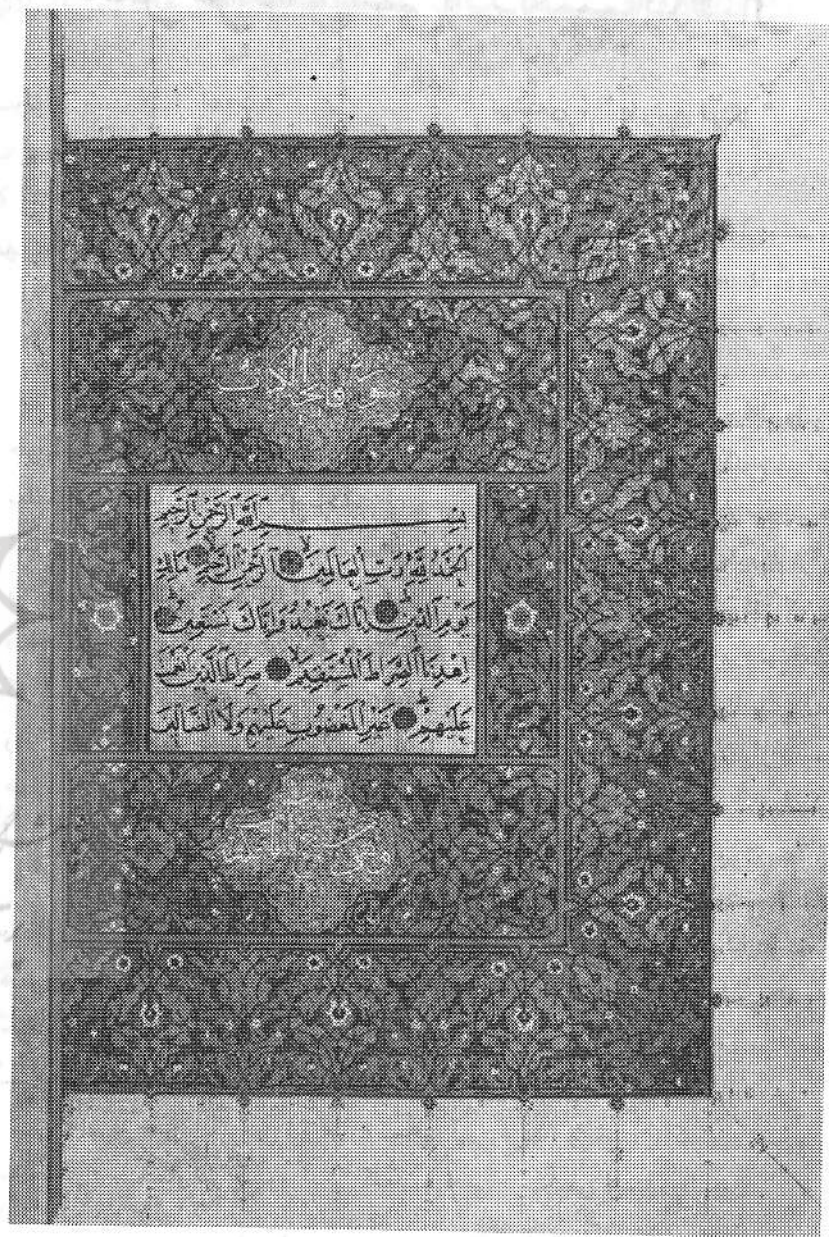 سورة فاتحة الكتاب
بِسْمِ اللَّهِ الرَّحْمَٰنِ الرَّحِيمِ
اَلْحَمْدُ لِلَّهِ رَبِّ الْعَالَمِينَ اَلرَّحْمَٰنِ الرَّحِيمِ مَالِكِ
يَوْمِ الدِّينِ اِيَّاكَ نَعْبُدُ وَاِيَّاكَ نَسْتَعِينُ
اِهْدِنَا الصِّرَاطَ الْمُسْتَقِيمَ صِرَاطَ الَّذِينَ اَنْعَمْتَ
عَلَيْهِمْ غَيْرِ الْمَغْضُوبِ عَلَيْهِمْ وَلَا الضَّالِّينَ